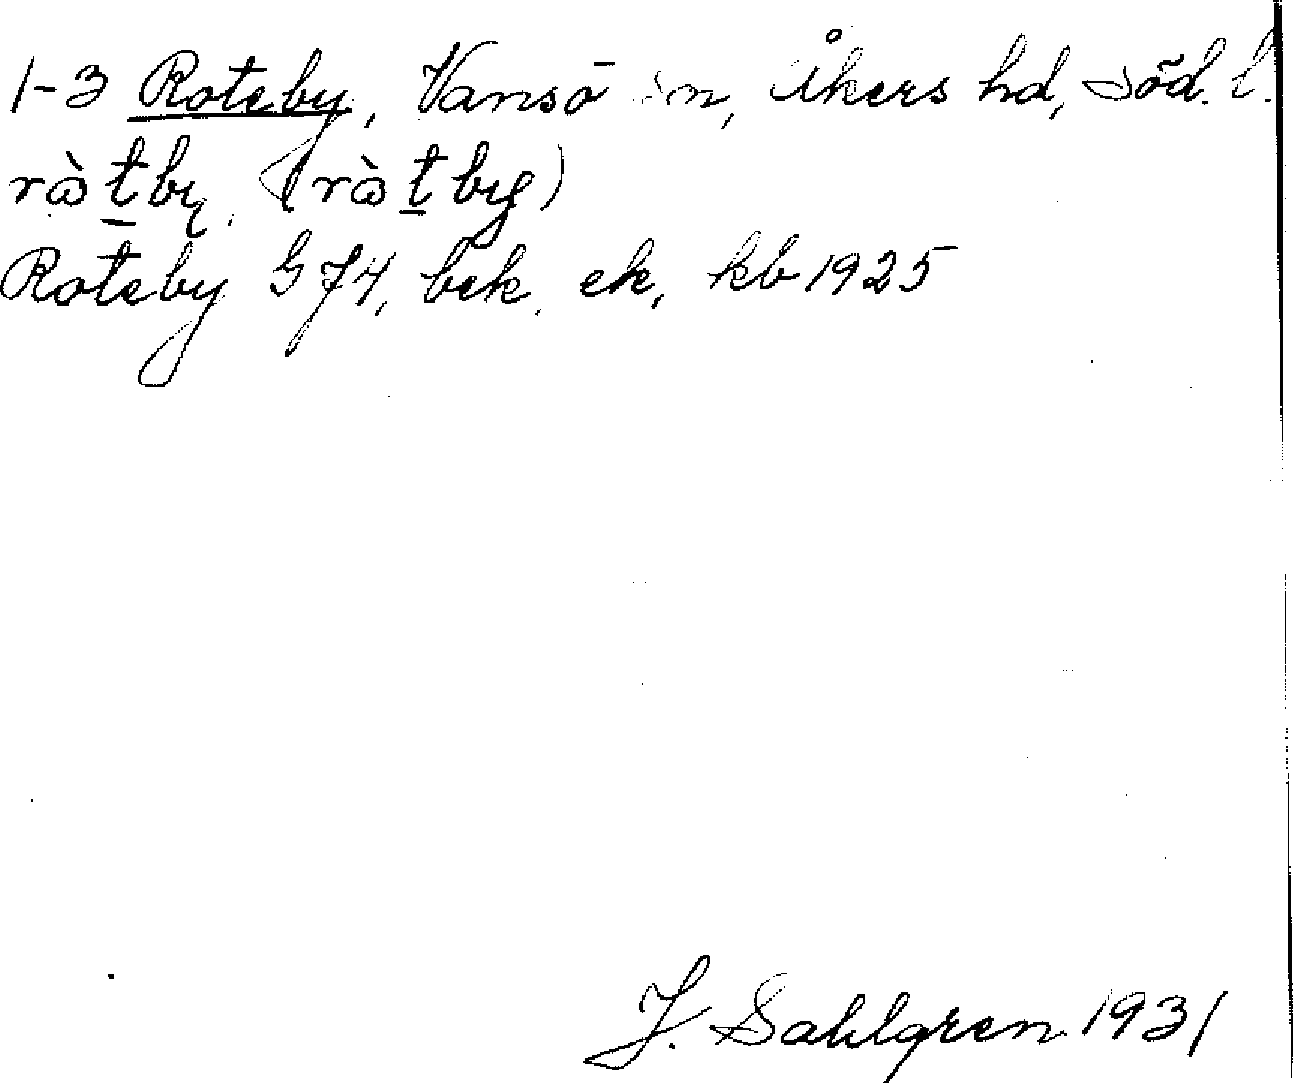 1-3 Roteby, Vansö sn, Åkers hd, Söd. l.
ràtby (ràtby)
Roteby G74, bek, ek, kb 1925
J. Sahlgren 1931